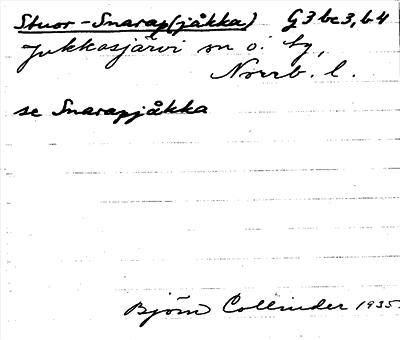 Stuor-Snarap(jåkka) G3bc3,b4
Jukkasjärvi sn o. tg,
Norrb. l.
se Snarapjåkka
Björn Collinder 1935.